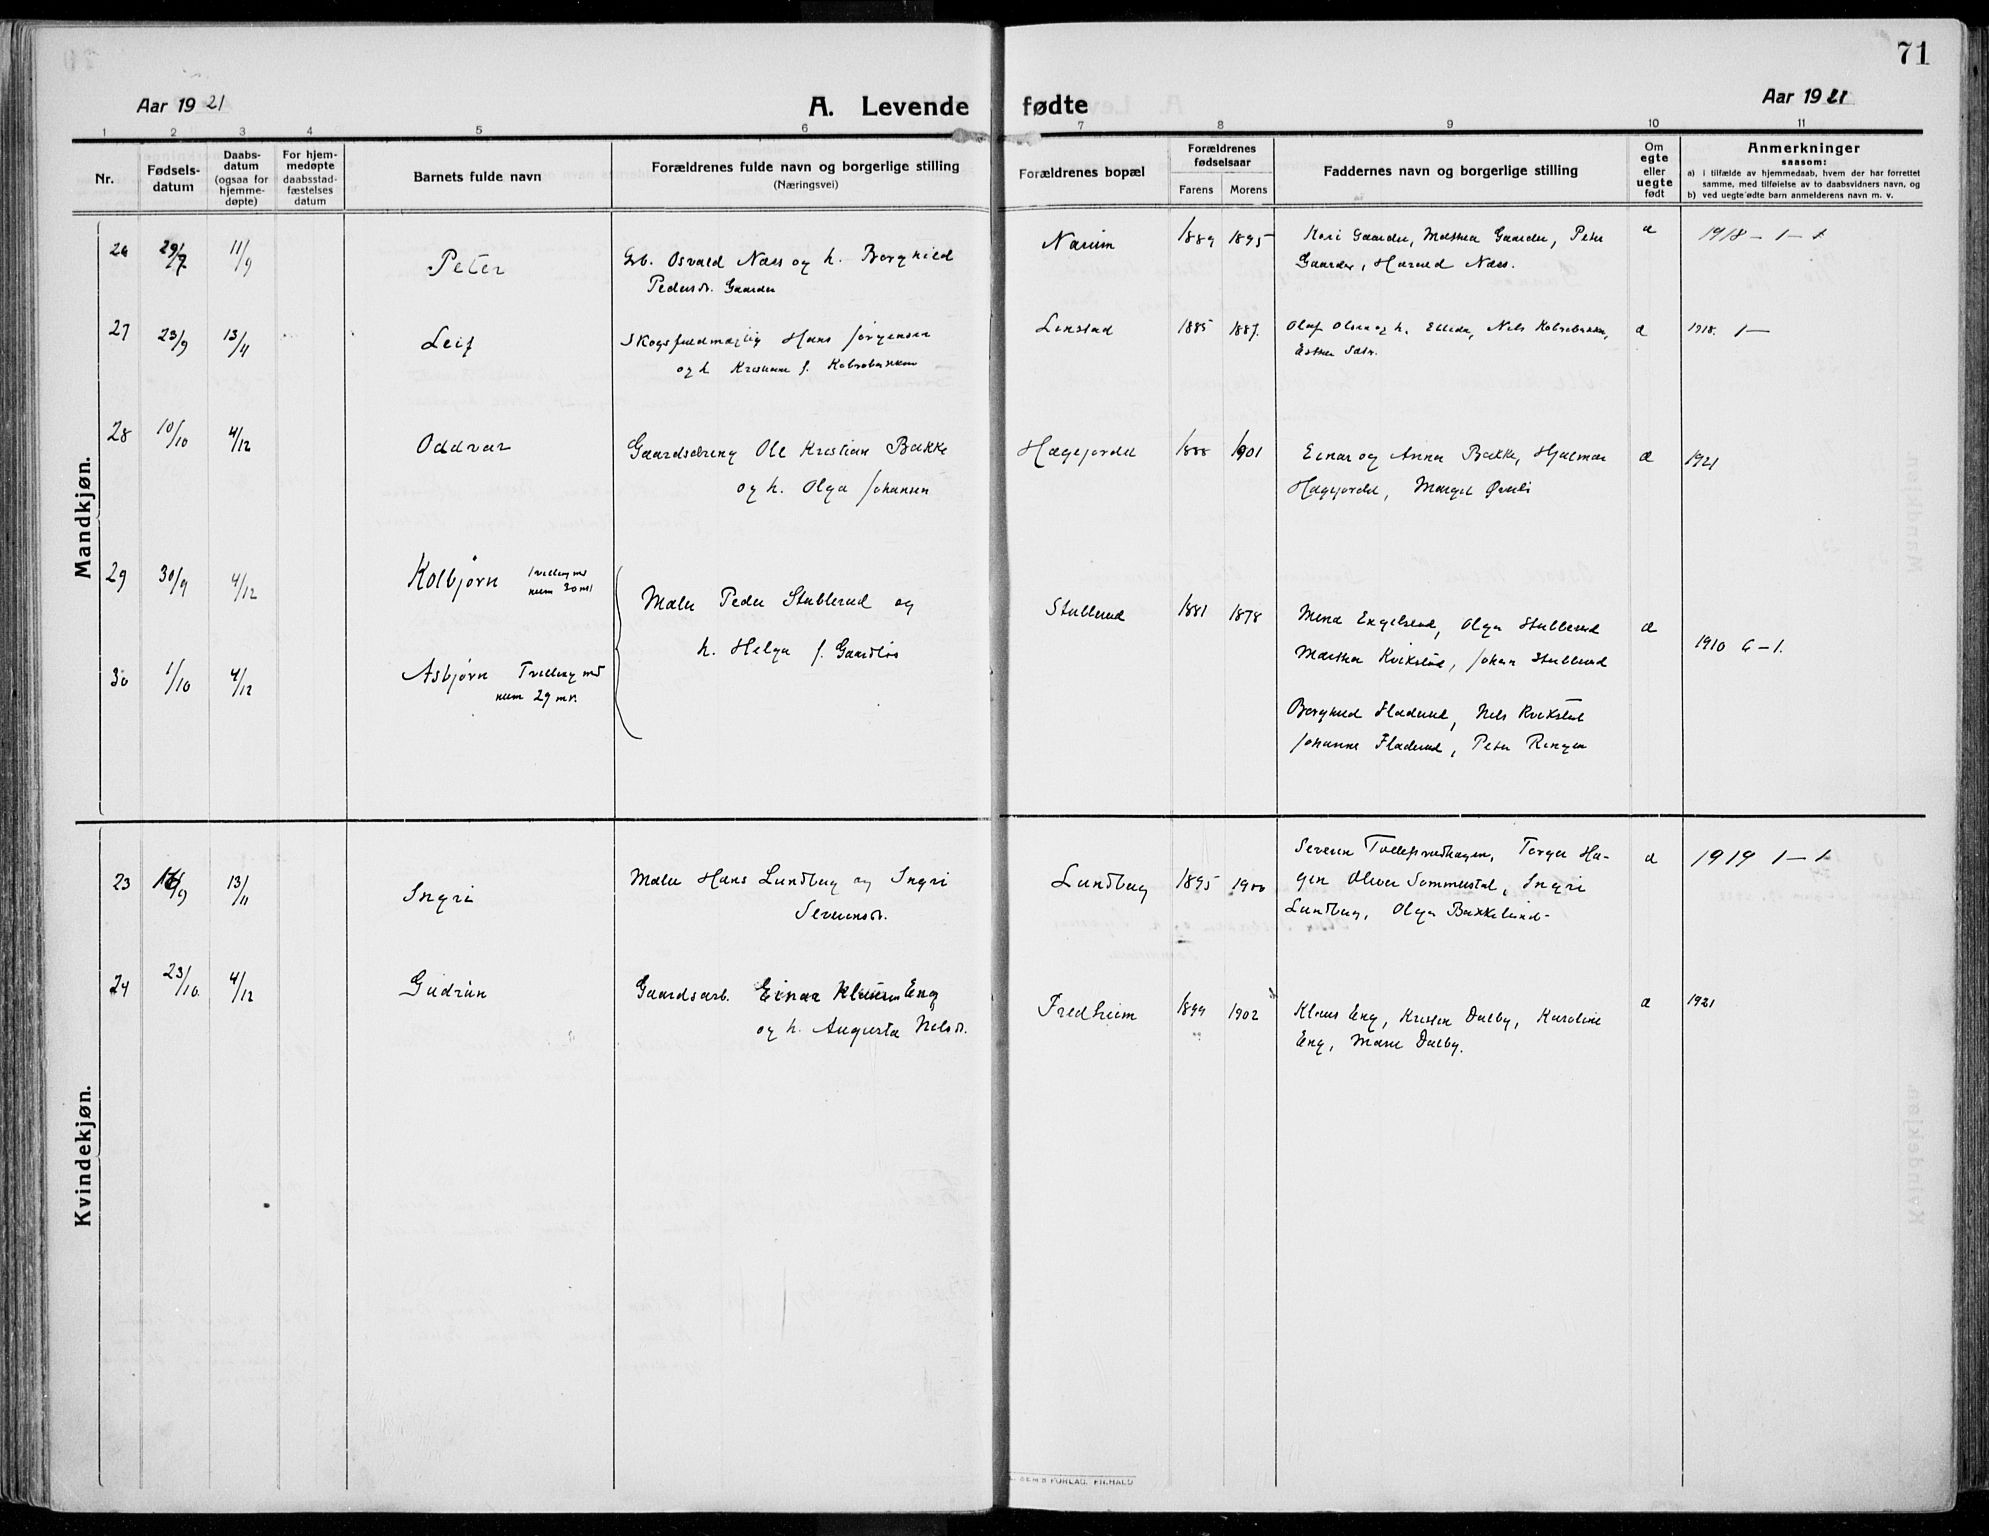 71
Aar 1921
A. Levende fødte
Aar 1921
1 2 3 4 5 6 7 8 9 10 11
Nr.
Fødsels-
datum
Daabs-
datum
(ogsaa for
hjemme-
døpte)
For hjem-
medøpte
daabsstad-
fæstelses
datum
Barnets fulde navn
Forældrenes fulde navn og borgerlige stilling
(Næringsvei)
Forældrenes bopæl
Forældrenes
fødselsaar
Farens Morens
Faddernes navn og borgerlige stilling
Om
egte
eller
uegte
født
Anmerkninger
saasom:
a) i tilfælde av hjemmedaab, hvem der har forrettet
samme, med tilføielse av to daabsvidners navn, og
b) ved uegte fødte børn anmelderens navn m. v.
Mandkjøn.
26 29/7 11/9 Peter Osvald Næss og h. Borghild Narum 1889 1895 Kari Gaarder, Mathea Gaarder, Peter æ 1918 – 1 – 1
Pedersd. Gaarder Gaarder, Harald Næss.
27 23/9 13/11 Leif Skogsfuldmægtig Hans Jørgensen Lenstad 1885 1887. Olaf Olsen og h. Nils Kolsrbakken, æ 1918. 1 –
og h. Kristiane f. Esther
28 10/10 4/12 Oddvar Gaardsdreng Ole Kristian Bakke Hægejordet 1888 1901 Einar og Anna Bakke, Hjalmar æ 1921
og h. Olga Johansen Hægejordet, Margit Øverli
29 30/9 4/12 Kolbjørn Tvilling m
num 30 mk
Maler Peder Stubberud og Stubberud 1881 1878 Mina Engelstad, Olga Stubberud æ 1910 6 – 1.
h. Helga f. Gaardløs Marthea Kvikstad, Johan Stubberud
30 1/10 4/12 Asbjørn Tvilling md
num 29 mk.
Borghild Fladerud, Nils Kvikstad
Johanne Fladerud, Peter Ringen
Kvindekjøn.
23 16/9 13/11 Ingri Maler Hans Lundberg og Ingri Lundberg 1895 1900 Severin Tollefsrudhagen, Torger Ha- æ 1919 1 – 1
Severinsd. gen Oliver Sommerstad, Ingri
Lundberg, Olga Bakkelund.
24 23/10 4/12 Gudrun Gaardsarb. Einar Klausen Eng Fredheim 1899 1902 Klaus Eng, Kristen Dalby, Karoline æ 1921
og h. Augusta Nilsd. Eng, Marie Dalby.
FORLAG. FR.HALD